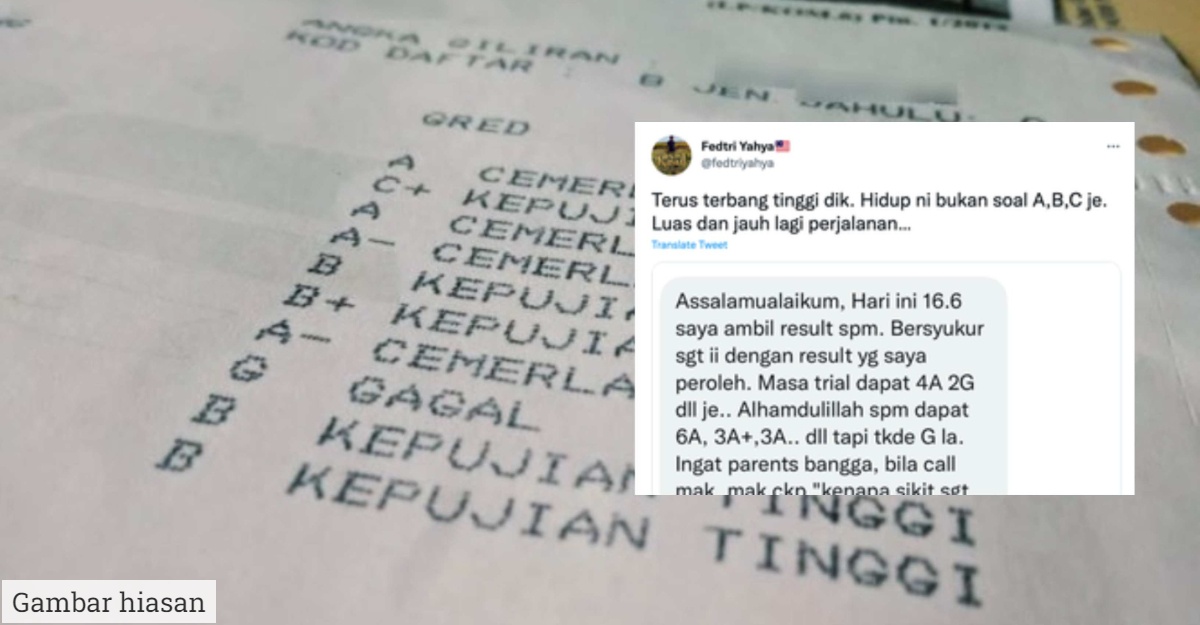 (LP-KOM.A) Pin. 1/2012
ANGKA GILIRAN :
KOD DAFTAR : B JEN. DAHULU:
GRED
A CEMERL
C+ KEPUJI
A CEMERL
A- CEMERL
B KEPUJI
B+ KEPUJIA
A- CEMERLA
G GAGAL
B KEPUJIAN TINGGI
B KEPUJIAN TINGGI
Fedtri Yahya🇲🇾
@fedtriyahya
Terus terbang tinggi dik. Hidup ni bukan soal A,B,C je.
Luas dan jauh lagi perjalanan...
Translate Tweet
Assalamualaikum, Hari ini 16.6
saya ambil result spm. Bersyukur
sgt ii dengan result yg saya
peroleh. Masa trial dapat 4A 2G
dll je.. Alhamdulillah spm dapat
6A, 3A+,3A.. dll tapi tkde G la.
Ingat parents bangga, bila call
mak, mak ckp "kenapa sikit sgt
Gambar hiasan